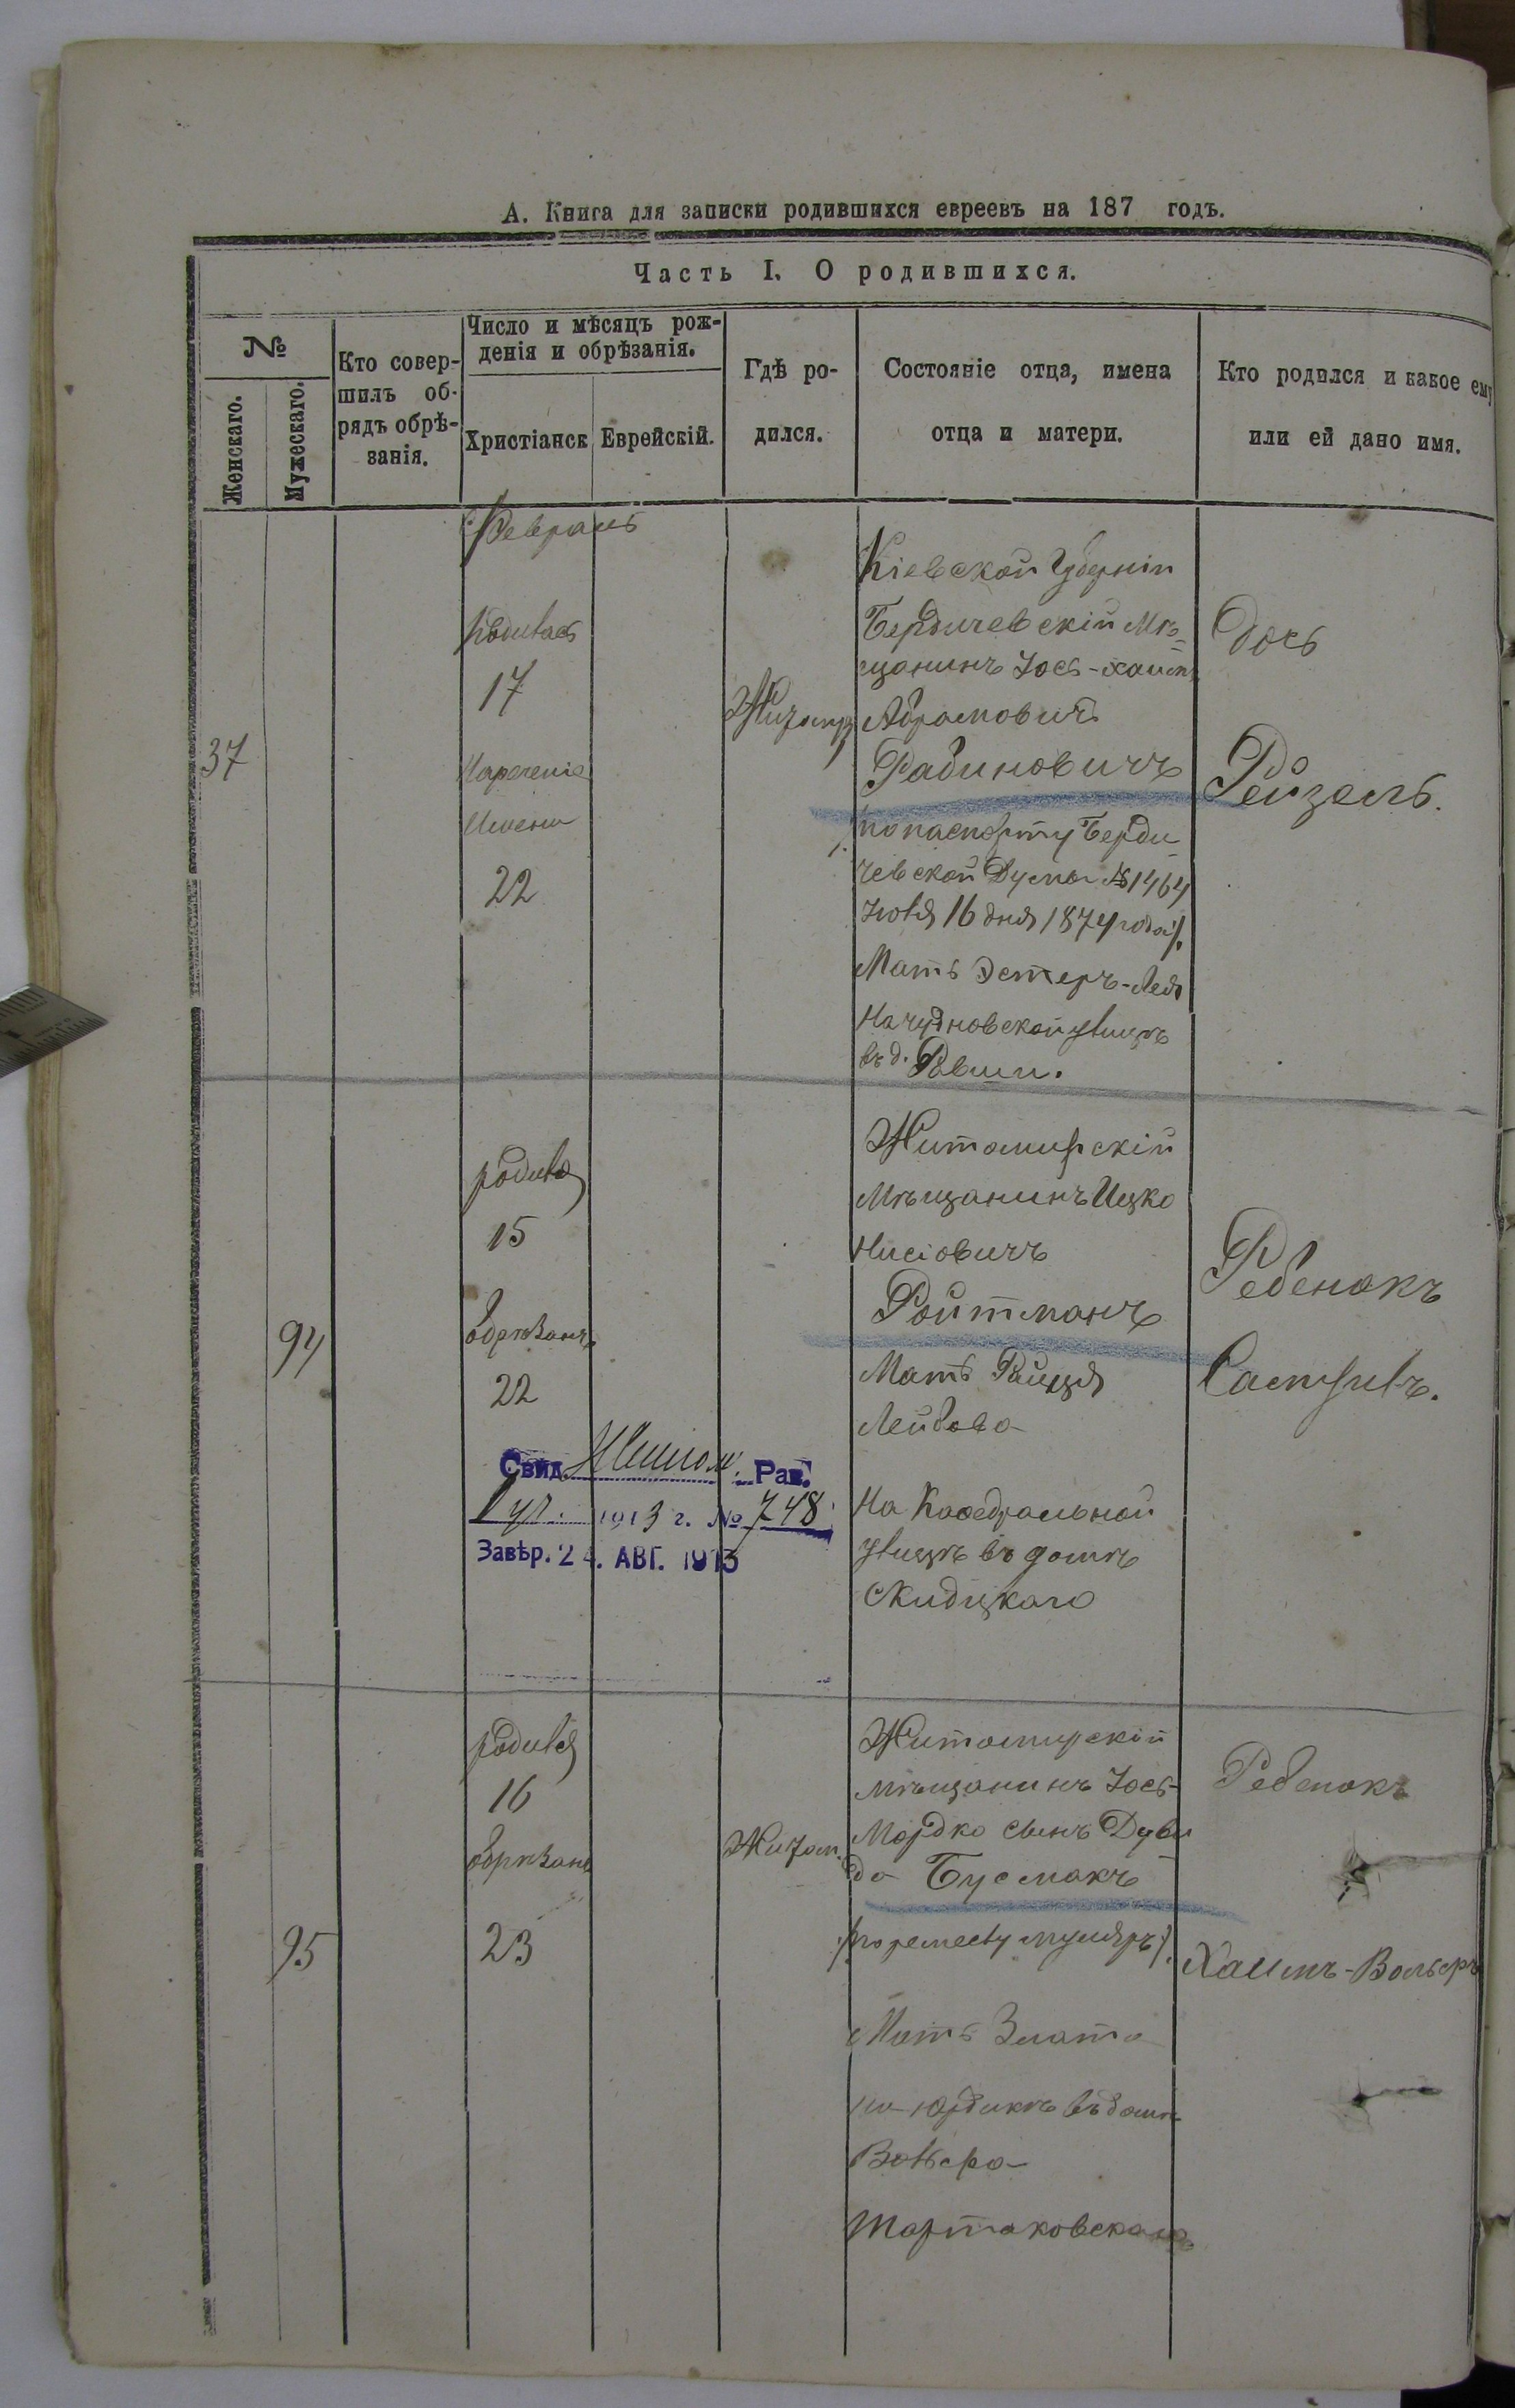 А. Книга для записки родившихся евреевъ на 187 годъ.
Часть I. О родившихся.
№
Женскаго.
Мужескаго.
Кто совер-
шилъ об-
рядъ обрѣ-
занія.
Число и мѣсяцъ рож-
денія и обрѣзанія.
Христіанск
Еврейскій.
Гдѣ ро-
дился.
Состояніе отца, имена
отца и матери.
Кто родился и какое ему
или ей дано имя.
Февраль
37
Родилась
17
Нареченіе
Имени
22
Житомр
Кіевской Губерніи
Бердичевскій Мѣ-
щанинъ Іось-Хаимъ
Абрамовичъ
Рабиновичъ
/: по паспорту Берди
чевской Думы №1464
Іюля 16 дня 1874 года :/.
Мать Эстеръ-Лея
На чудновской улицѣ
въ д. Ровши.
Дочь
Рейзель.
94
родился
15
обрѣзанъ
22
Житомирскій
Мѣщанинъ Ицко
Нисіовичъ
Ройтманъ
Мать Райця
Лейбова
На Каѳедральной
улицѣ въ домѣ
Скидицкаго
Ребенокъ
Самуилъ.
Свид. Житом. Рав.
1913 г. № 748
Завѣр. 24. АВГ. 1913
95
родился
16
обрѣзанъ
23
Житом.
Житомирскій
мѣщанинъ Іось-
Мордко сынъ Дуви
да Бусмакъ
/: по ремеслу муляръ :/.
Мать Злата
на юрдикѣ въ домѣ
Вольфа
Тартаковскаго
Ребенокъ
Хаимъ-Вольфъ